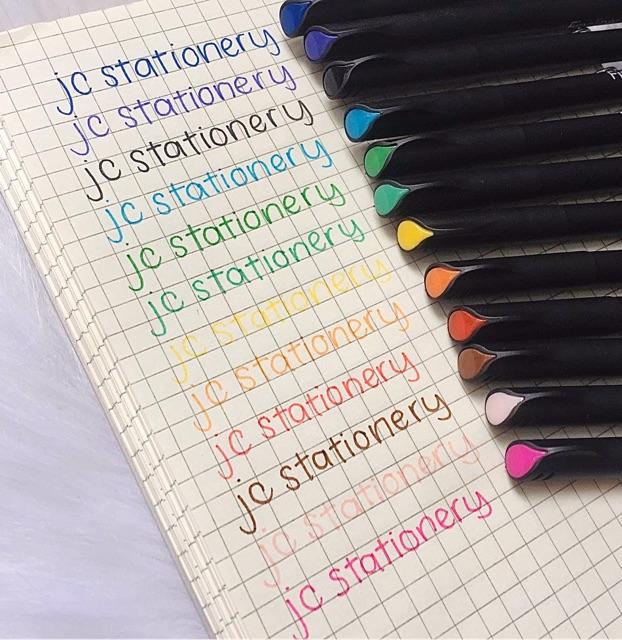 jc stationery
jc stationery
jc stationery
jc stationery
jc stationery
jc stationery
jc stationery
jc stationery
jc stationery
jc stationery
jc stationery
jc stationery